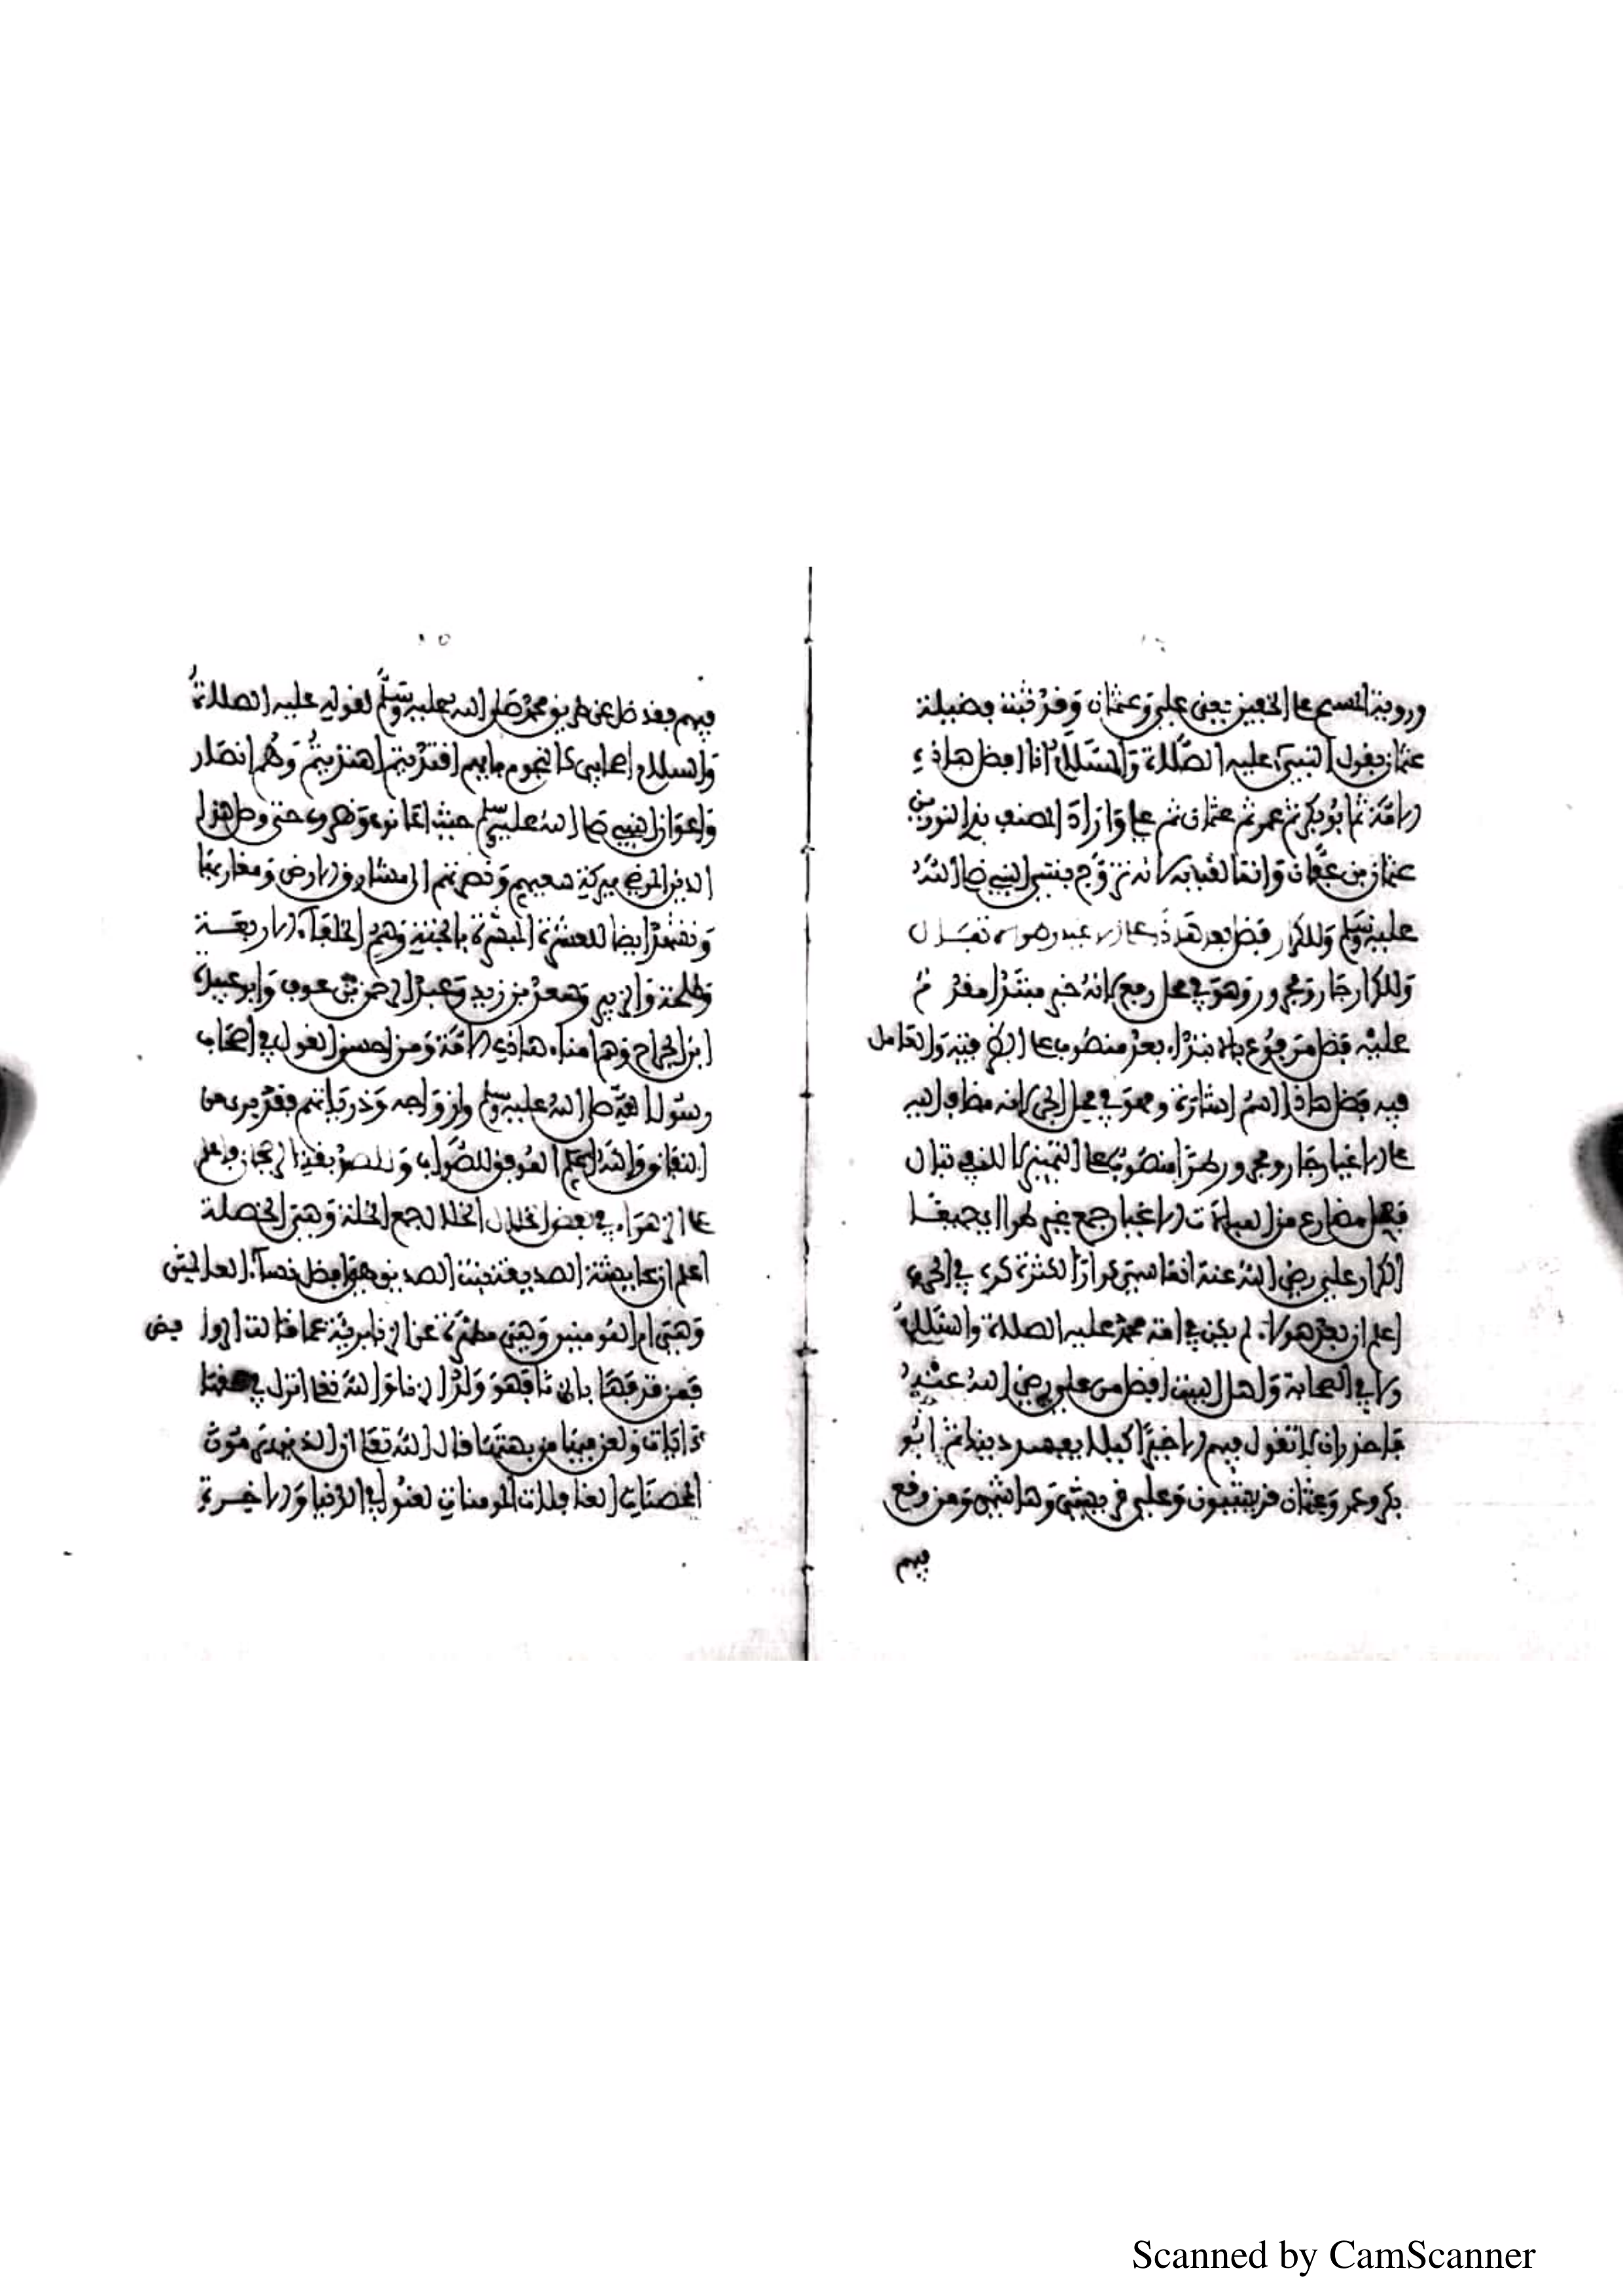 ورؤية المسح على الخفين يعني علي وعثمان وقد ثبتت فضيلة
عثمان بقول النبي عليه الصلاة والسلام انا افضل هاذه
الامة ثم أبو بكر ثم عمر ثم عثمان ثم علي وأراد المصنف بذي النورين
عثمان بن عفان وإنما لقب به لأنه تزوج بنتي النبي صلى الله
عليه وسلم وللكرار فضل بعد هذا
وللكرار جار ومجرور وهو في محل رفع لأنه خبر مبتدإ مقدم
عليه فضل مرفوع بالابتداء بعد منصوب على الظرفية والعامل
فيه فضل هاذا اسم إشارة وهو في محل الجر لأنه مضاف إليه
على الاغيار جار ومجرور طرا منصوب على التمييز
فعل مضارع من المبالات الاغيار جمع غير طرا أي جميعا
الكرار علي رضي الله عنه انما سمي كرارا لكثرة كره في الحرب
اعلم ان بعد هولاء لم يكن في امة محمد عليه الصلاة والسلام
ولا في الصحابة وأهل البيت افضل من علي رضي الله عنه
فاحذر ان لا تقول فيهم الا خيرا كيلا يفسد دينك ثم أبو
بكر وعمر وعثمان وعلي ومن وقع
فيهم
فيهم فقد ضل عن طريق محمد صلى الله عليه وسلم لقوله عليه الصلاة
والسلام اصحابي كالنجوم بايهم اقتديتم اهتديتم وهم انصار
واعوان النبي صلى الله عليه وسلم حيث اعانوه حتى وصل هذا
الدين المرضي ببركة سعيهم ونصرتهم الى مشارق الارض ومغاربها
ونشهد أيضا للعشرة المبشرة بالجنة وهم الخلفاء الاربعة
وطلحة والزبير وسعد بن زيد وعبد الرحمن بن عوف وأبو عبيدة
ابن الجراح وهم امناء هاذه الامة ومن احسن القول في أصحاب
رسول الله صلى الله عليه وسلم وازواجه وذرياتهم فقد برئ من
النفاق والله اعلم الموفق للصواب
على الزهراء في بعض الخلال الخلال جمع الخلة وهي الخصلة
اعلم ان عايشة الصديقة بنت الصديق هي افضل نساء العالمين
وهي ام المومنين وهي مطهرة عن الزنا برية عما قالت الروافض
فمن قذفها بالزنا فهو ولد الزنا والله تعالى انزل في حقها
ءايات قال الله تعالى إن الذين يرمون
المحصنات الغافلات المومنات لعنوا في الدنيا والاخرة
Scanned by CamScanner